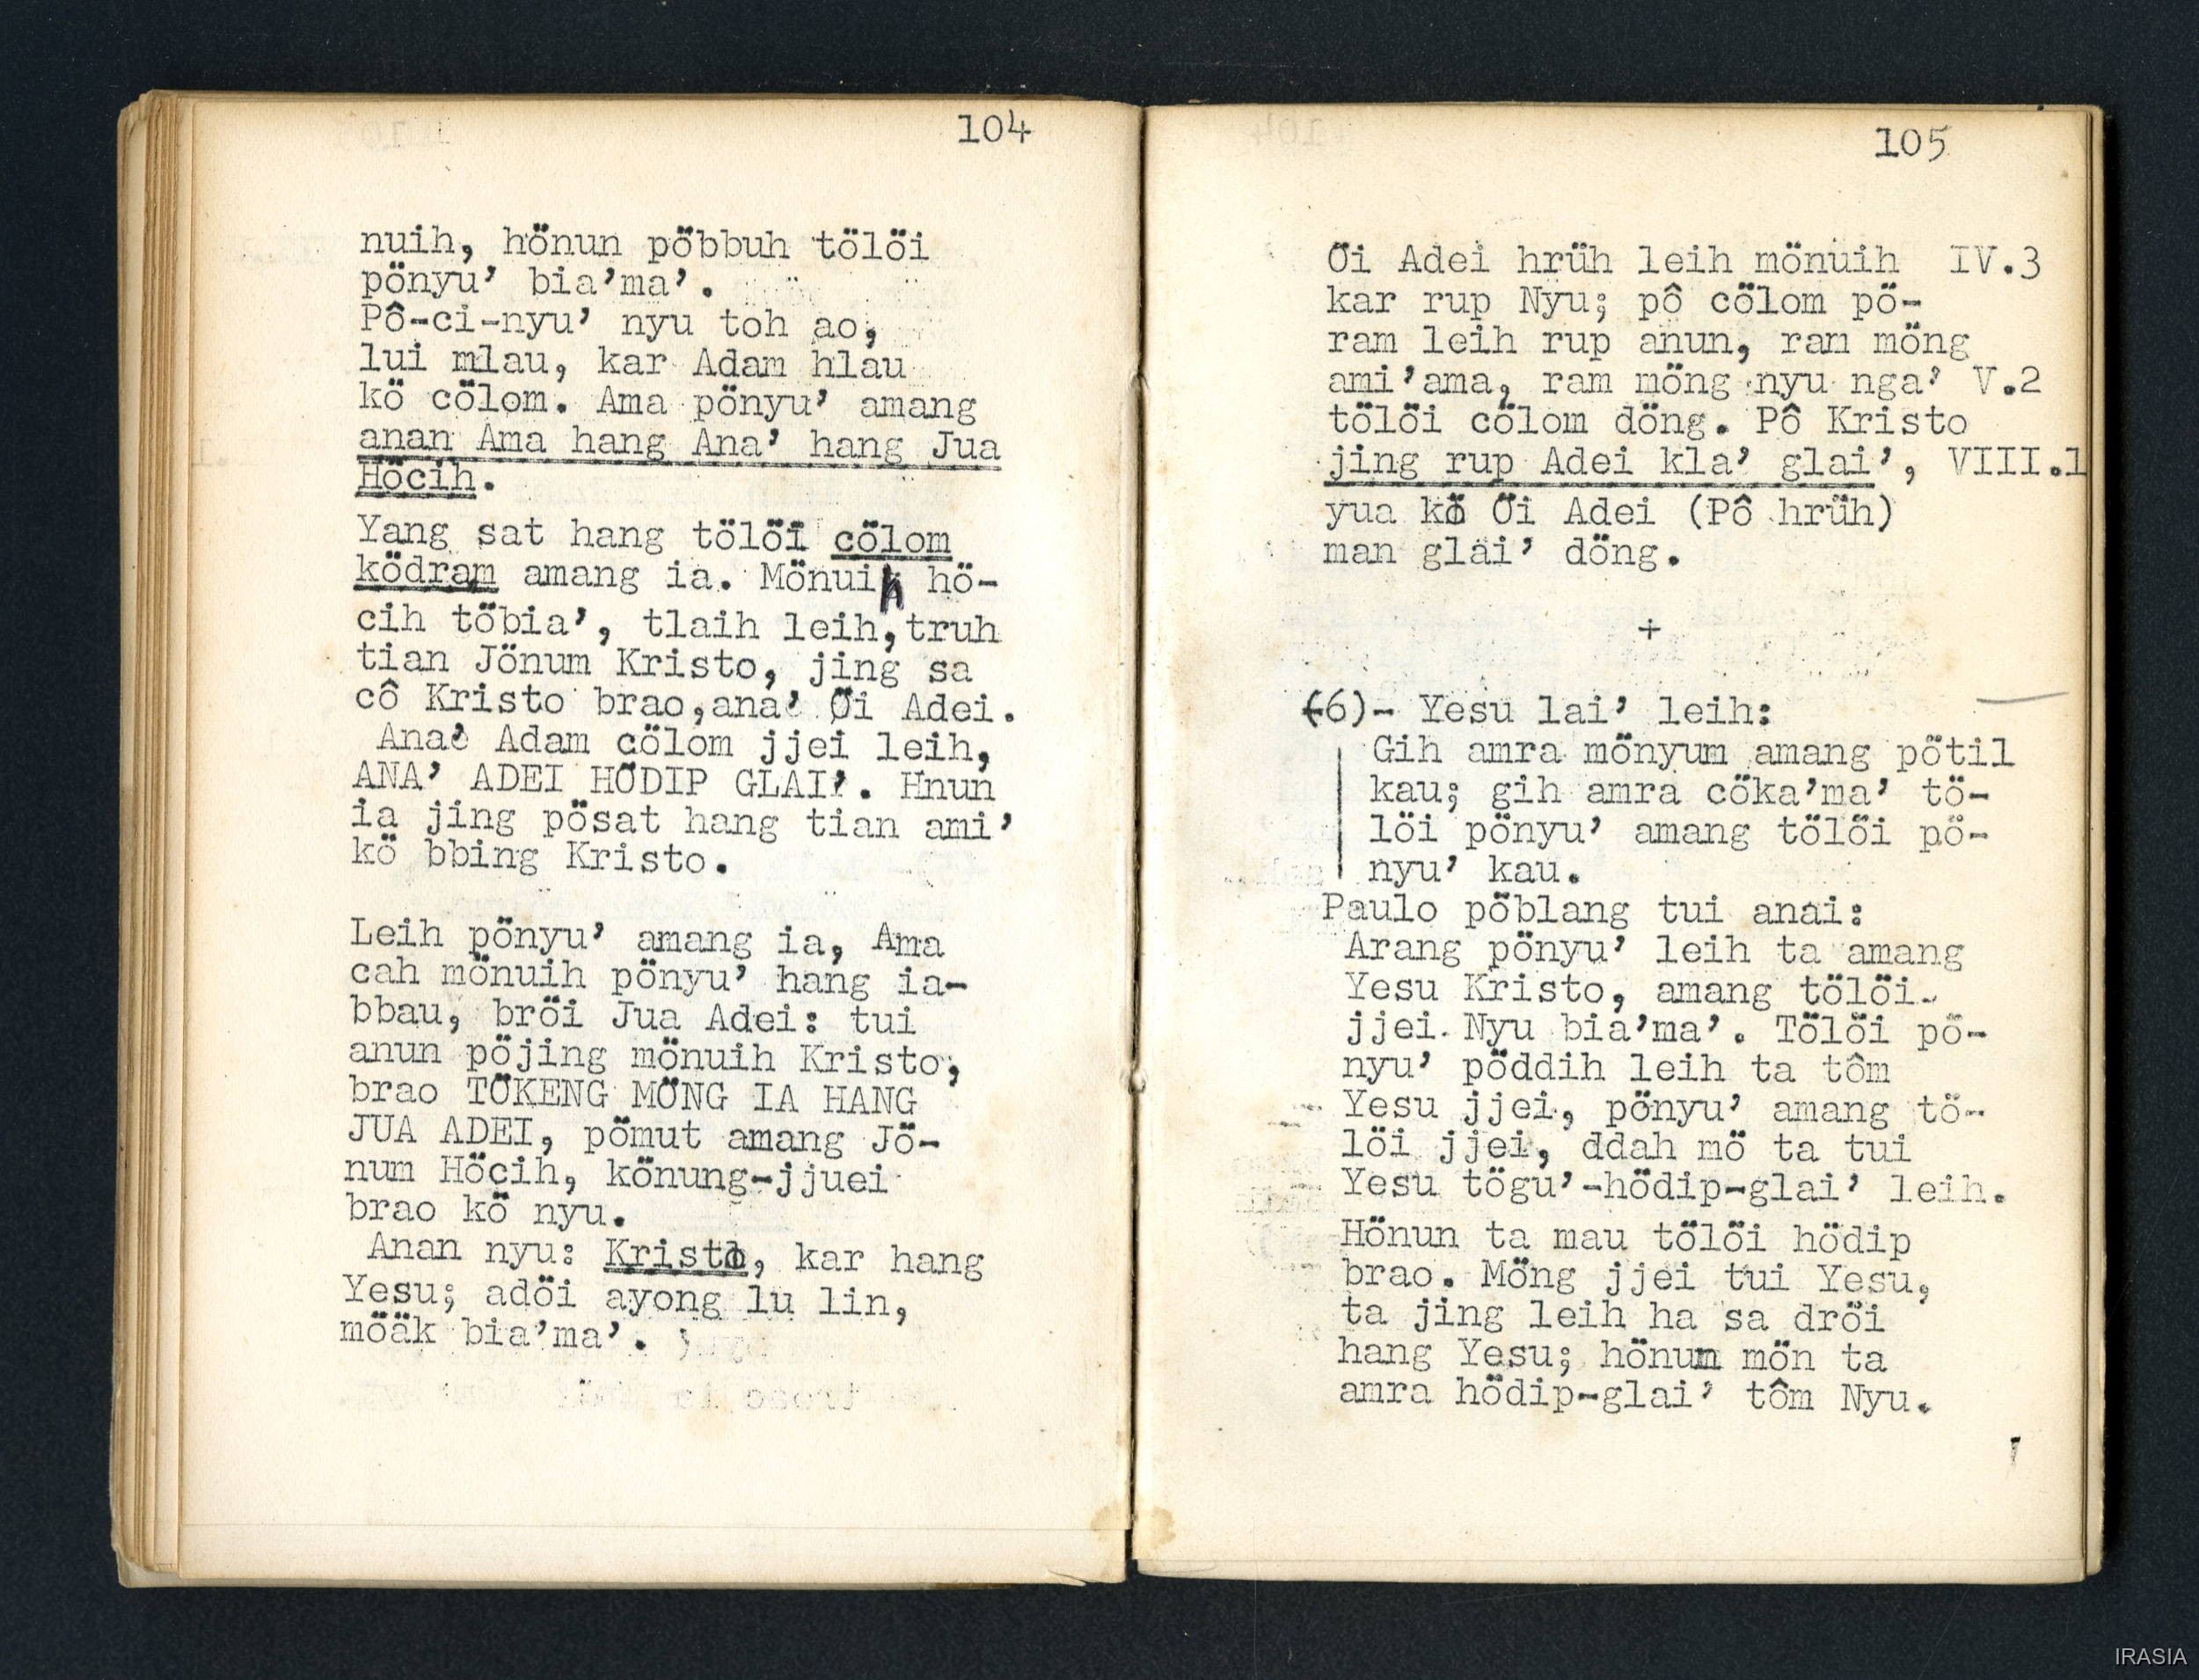 104
nuih, hönun pöbbuh tölöi
pönyu’ bia’ma’.
Pô-ci-nyu’ nyu toh ao,
lui mlau, kar Adam hlau
kö cölom. Ama pönyu’ amang
anan Ama hang Ana’ hang Jua
Höcih.
Yang sat hang tölöi cölom
ködram amang ia. Mönuih hö-
cih töbia’, tlaih leih,truh
tian Jönum Kristo, jing sa
cô Kristo brao,ana’ Öi Adei.
Ana’ Adam cölom jjei leih,
ANA’ ADEI HÖDIP GLAI’. Hnun
ia jing pösat hang tian ami’
kö bbing Kristo.
Leih pönyu’ amang ia, Ama
cah mönuih pönyu’ hang ia-
bbau, bröi Jua Adei: tui
anun pöjing mönuih Kristo,
brao TÖKENG MÖNG IA HANG
JUA ADEI, pömut amang Jö-
num Höcih, könung-jjuei
brao kö nyu.
Anan nyu: Kristo, kar hang
Yesu; adöi ayong lu lin,
möäk bia’ma’.
105
Öi Adei hrüh leih mönuih IV.3
kar rup Nyu; pô cölom pö-
ram leih rup anun, ram möng
ami’ama, ram möng nyu nga’ V.2
tölöi cölom döng. Pô Kristo
jing rup Adei kla’ glai’, VIII.1
yua kö Öi Adei (Pô hrüh)
man glai’ döng.
+
(6)- Yesu lai’ leih:
Gih amra mönyum amang pötil
kau; gih amra cöka’ma’ tö-
löi pönyu’ amang tölöi pö-
nyu’ kau.
Paulo pöblang tui anai:
Arang pönyu’ leih ta amang
Yesu Kristo, amang tölöi
jjei Nyu bia’ma’. Tölöi pö-
nyu’ pöddih leih ta tôm
Yesu jjei, pönyu’ amang tö-
löi jjei, ddah mö ta tui
Yesu tögu’-hödip-glai’ leih.
Hönun ta mau tölöi hödip
brao. Möng jjei tui Yesu,
ta jing leih ha sa dröi
hang Yesu; hönun mön ta
amra hödip-glai’ tôm Nyu.
IRASIA